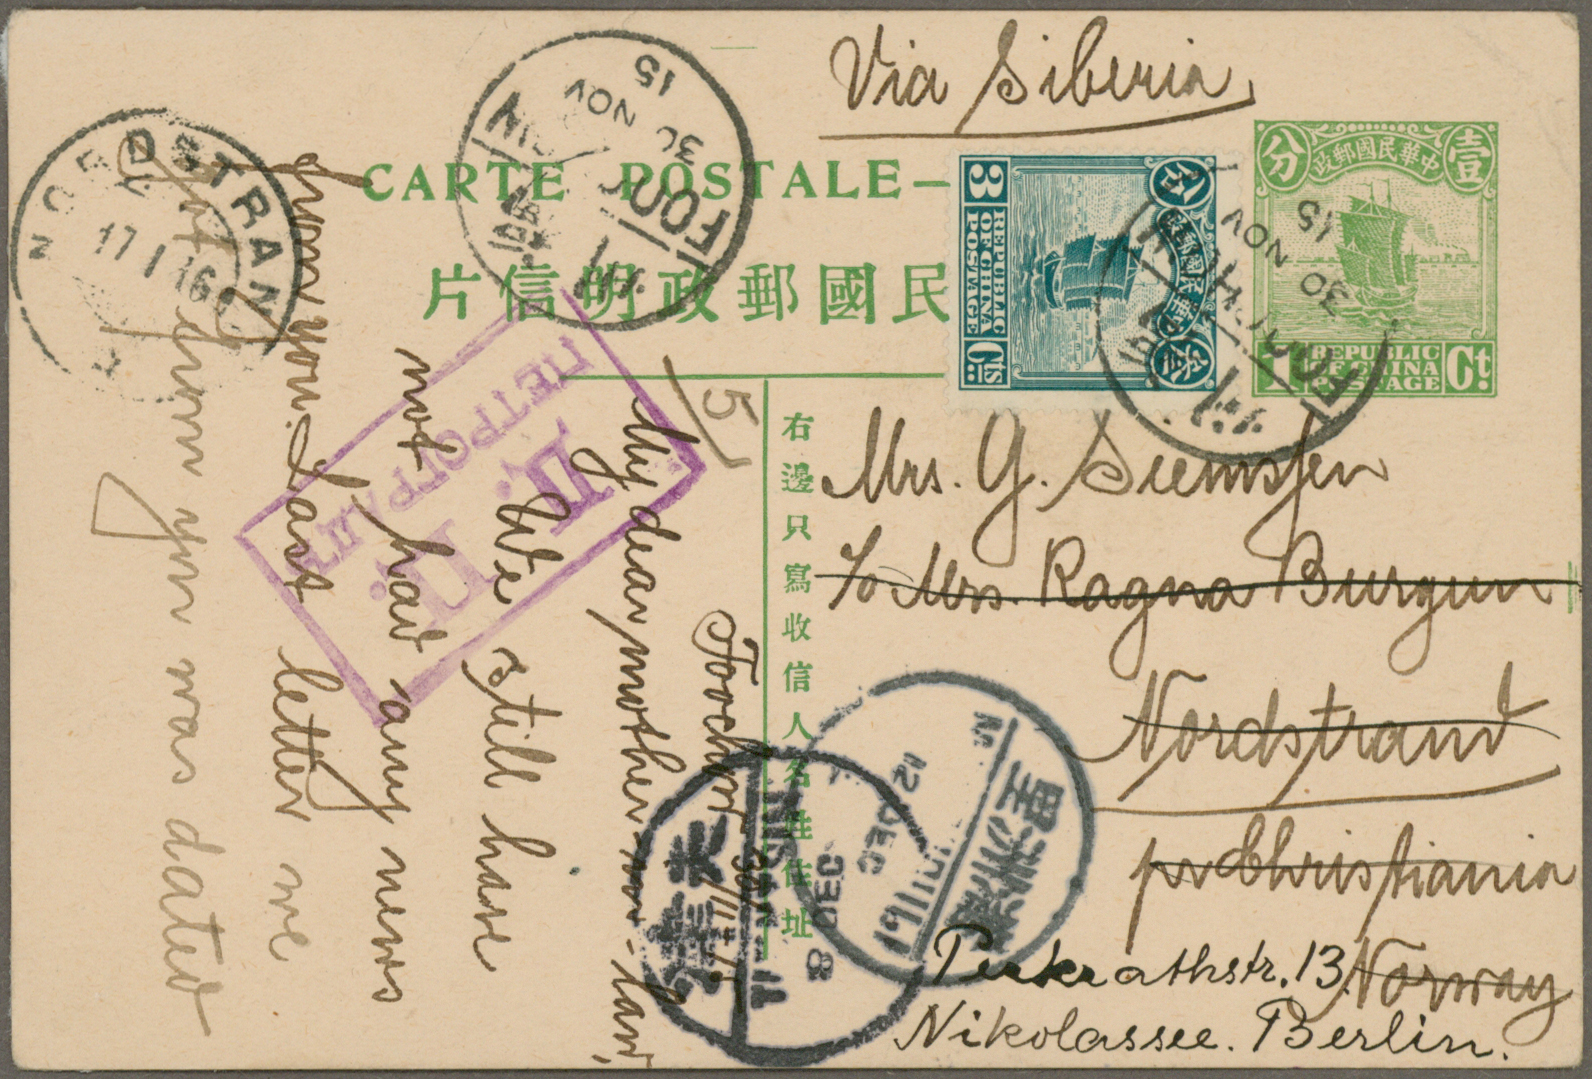 Via Siberia
CARTE POSTALE
民國郵政明信片
中華民國郵政
壹
分
1
Ct.
REPUBLIC
OF CHINA
POSTAGE
中華民國郵政
分
3
Cts
REPUBLIC
OF CHINA
POSTAGE
FOOCHOW
30 NOV
15
FOOCHOW
30 NOV
15
NORDSTRAND
17 I 16
П. Д.
ПЕТРОГРАДЪ
5
右邊只寫收信人名姓住址
Mrs. G. Siemssen
c/o Mrs. Ragna Burgun
Nordstrand
pr Christiania
Norway
Perkrathstr. 13.
Nikolassee. Berlin.
天津
TIENTSIN
8 DEC
里洲滿
12 DEC
Foochow 30/11 15
My dear mother-in-law,
We still have
not had any news
from you. Last letter we
got from you was dated